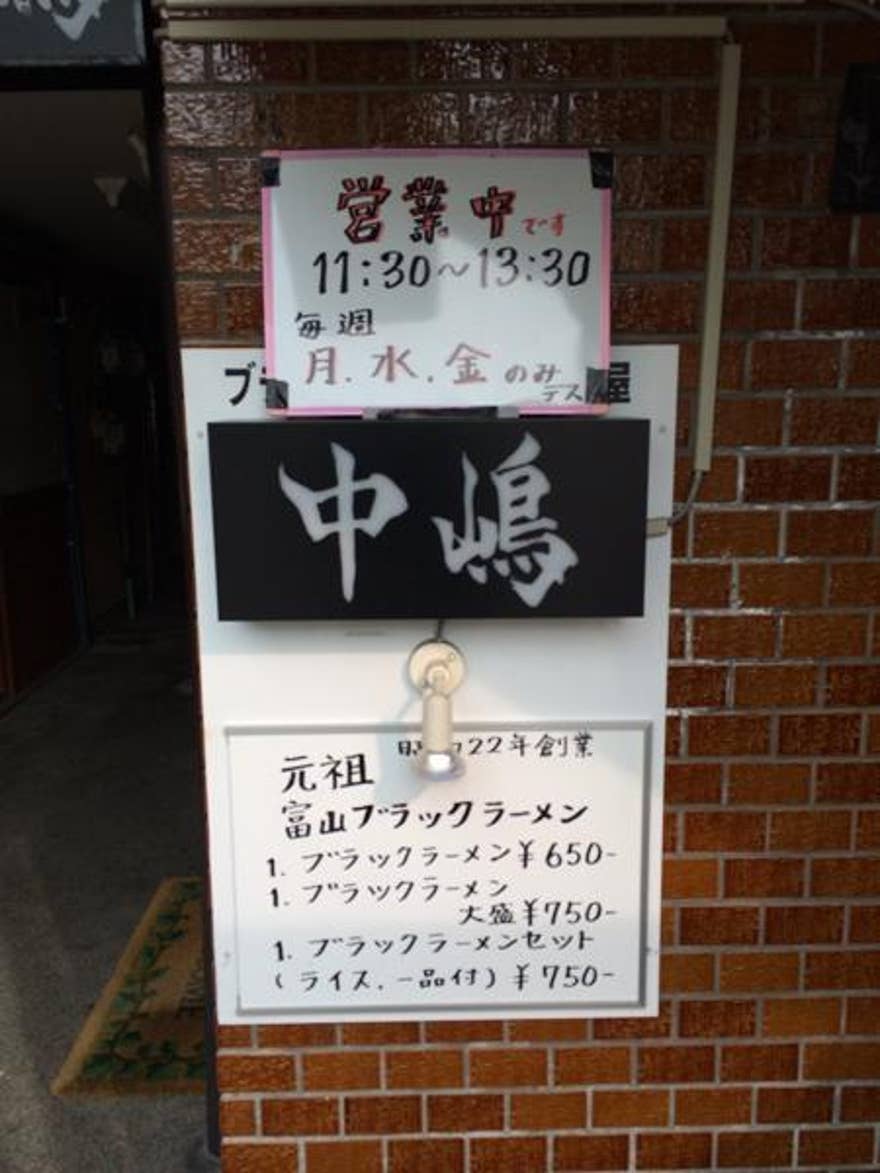 営業中です
11:30〜13:30
毎週
月.水.金のみ
デス
ブ
屋
中嶋
22年創業
元祖
富山ブラックラーメン
1. ブラックラーメン¥650-
1. ブラックラーメン
大盛¥750-
1. ブラックラーメンセット
(ライス.一品付)¥750-